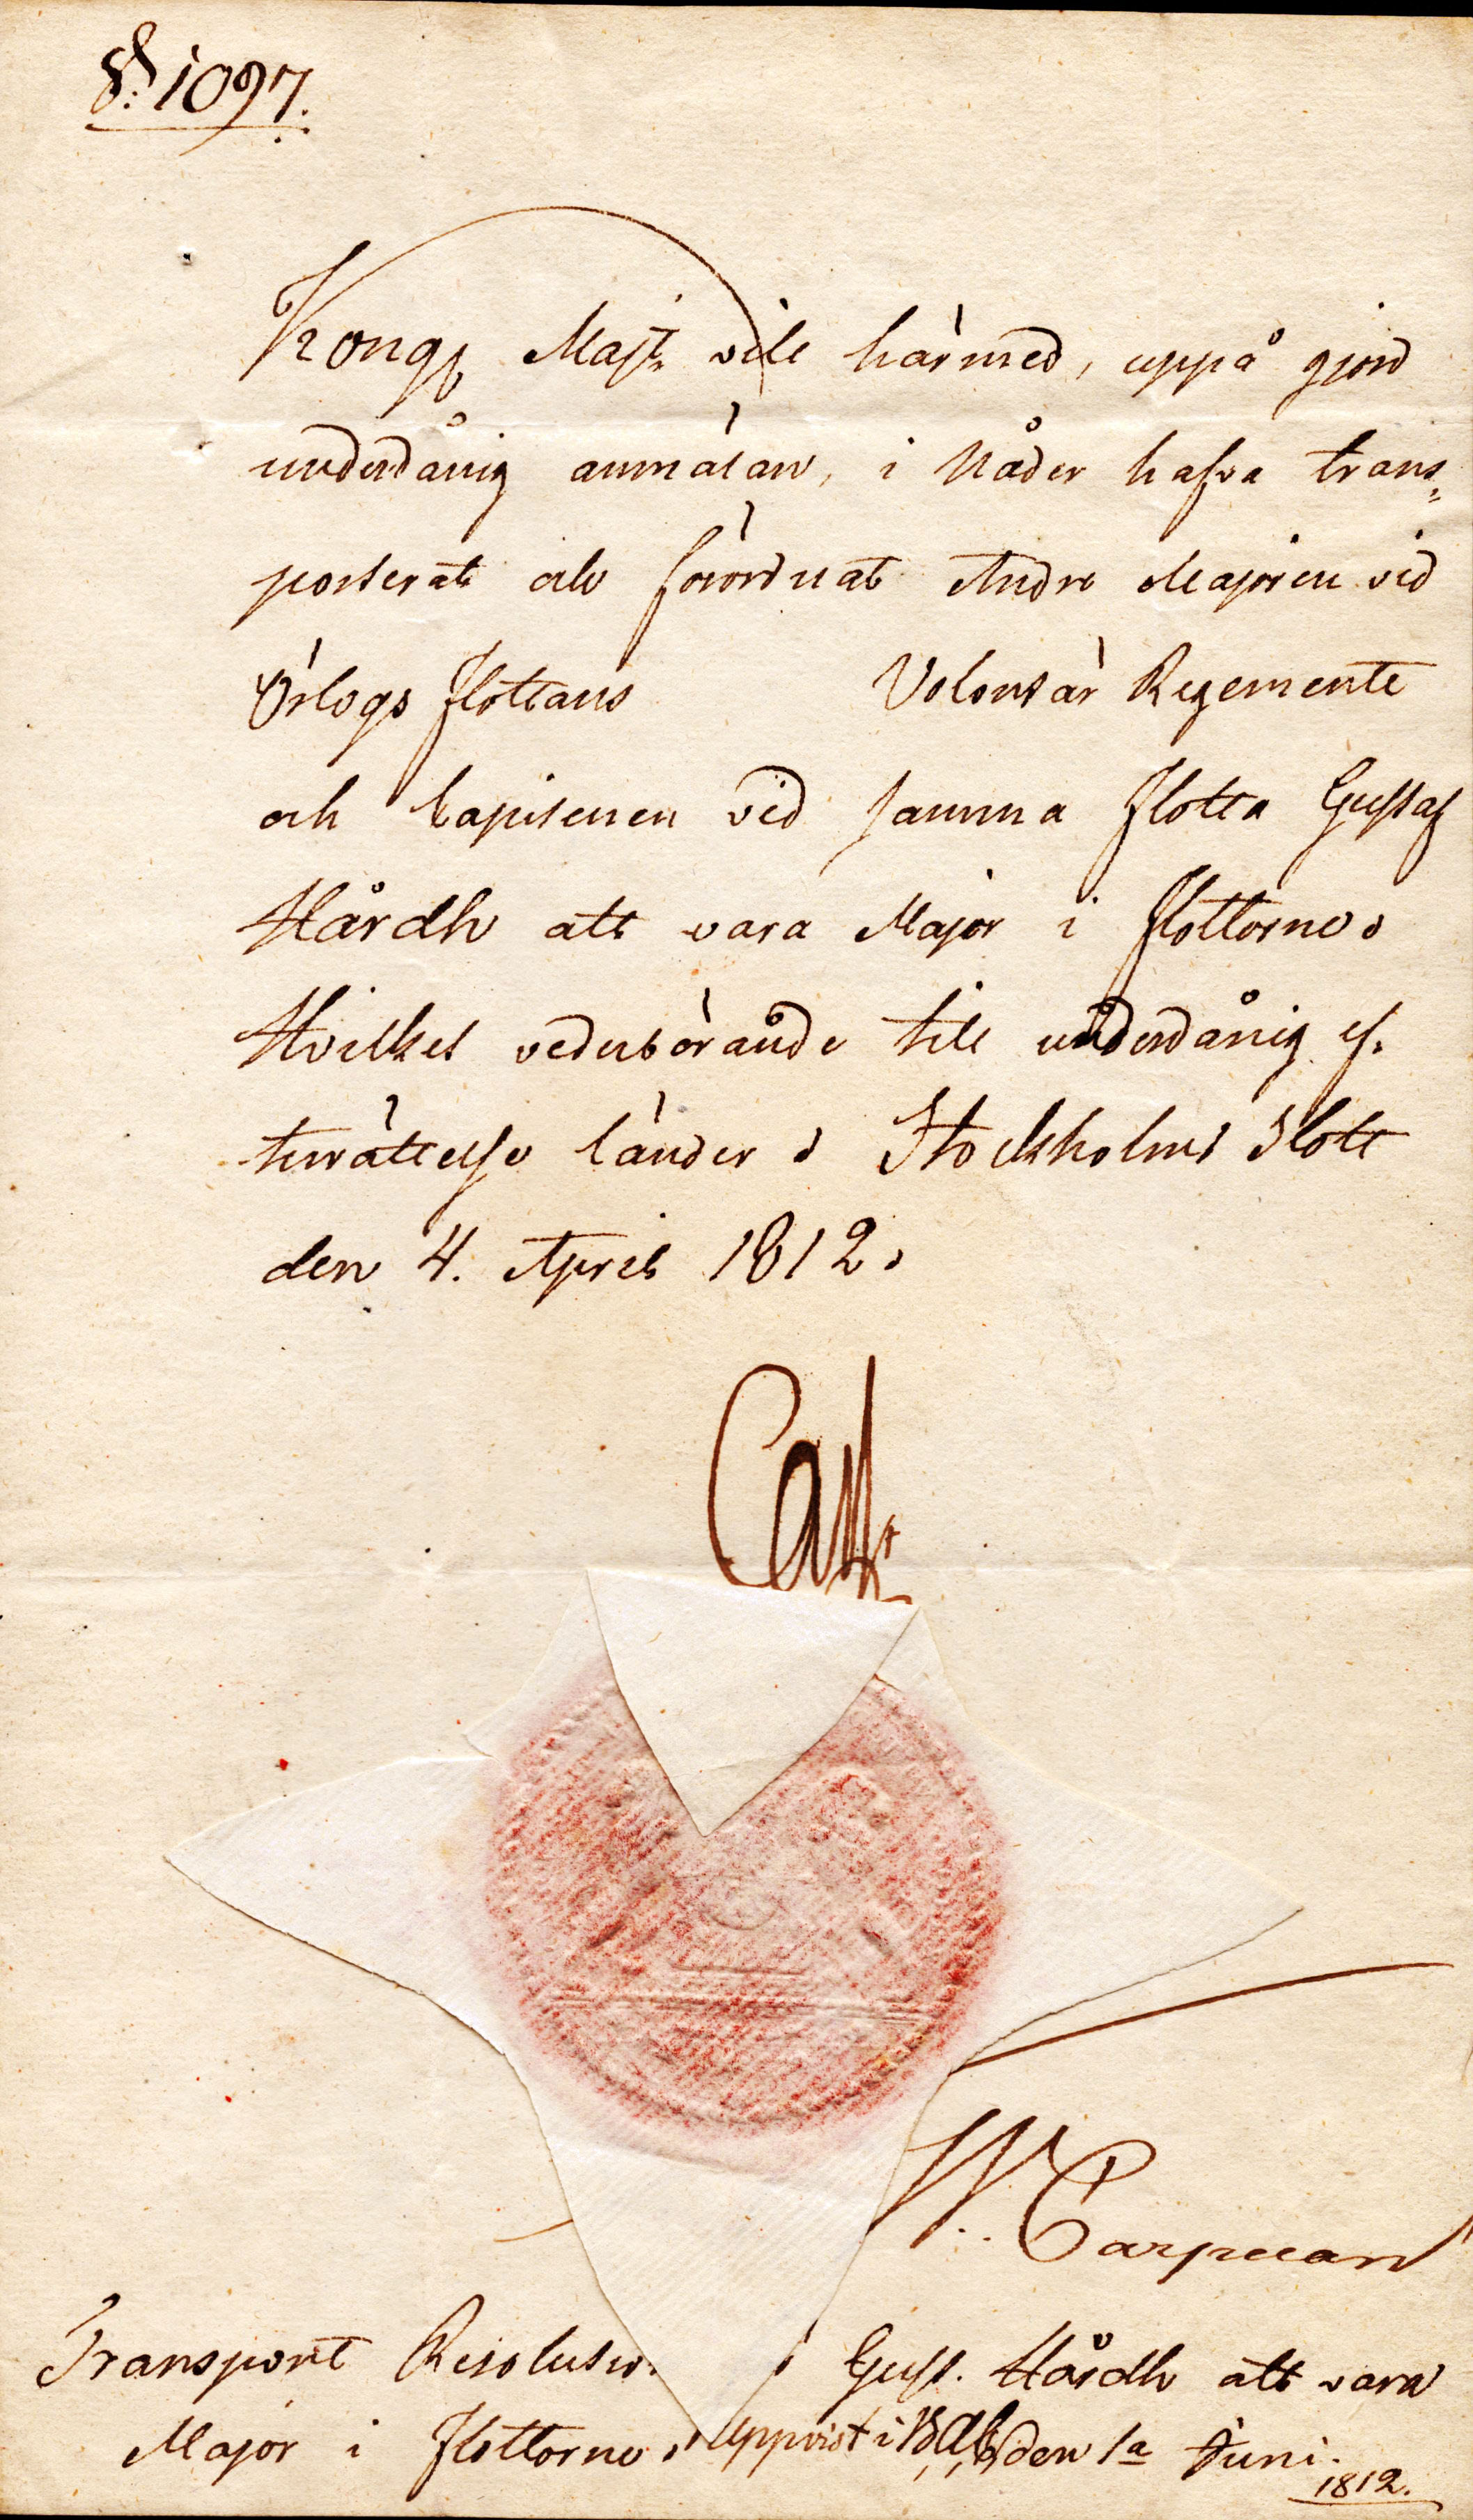 §: 1097.
Kongl Majt vill härmed, uppå gjord
underdånig anmälan, i Nåder hafva trans-
porterat och förordnat Andre Majoren vid
Örlogs flottans Volontär Regemente
och Capitenen vid samma flotta Gustaf
Hårdh att vara Major i flottorne.
Hvilket vederbörande till underdånig ef-
terrättelse länder. Stockholms Slott
den 4. April 1812.
Carl
W. Carpelan
Transport Resolution Gust. Hårdh att vara
Major i flottorne. Uppvist i den 1a Juni.
1812.